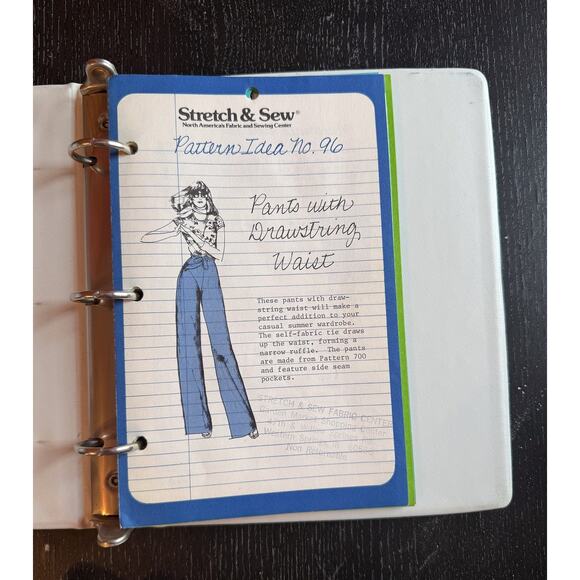 Stretch & Sew®
North America's Fabric and Sewing Center
Pattern Idea No. 96
Pants with
Drawstring
Waist
These pants with draw-
string waist will make a
perfect addition to your
casual summer wardrobe.
The self-fabric tie draws
up the waist, forming a
narrow ruffle. The pants
are made from Pattern 700
and feature side seam
pockets.
STRETCH & SEW FABRIC CENTER
Garden Market Shopping Center
Western Springs
Non Returnable